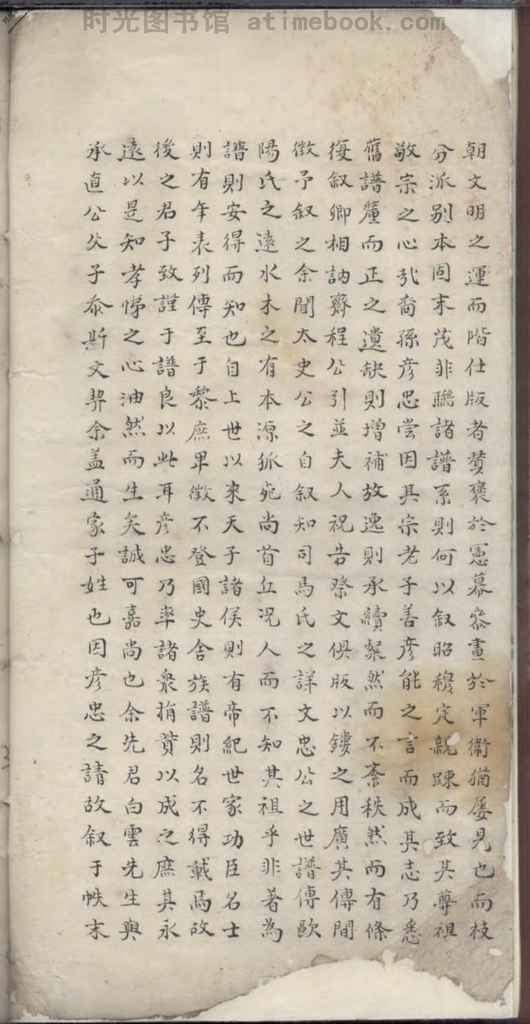 时光图书馆 atimebook.com
朝文明之運而階仕版者贊褒於憲幕參畫於軍衛猶屡見也而枝
分派別本同末茂非聮諸譜系則何以叙昭穆定親踈而致其尊祖
敬宗之心㢤裔孫彦忠嘗因其宗老子善彦能之言而成其志乃悉
舊譜釐而正之遺缺則增補故逸則承續粲然而不紊秩然而有條
復叙卿相訥齋程公引並夫人祝告祭文俱版以鏤之用廣其傳間
徴予叙之余聞太史公之自叙知司馬氏之詳文忠公之世譜傳歐
陽氏之遠水木之有本源狐兎尚首丘况人而不知其祖乎非著為
譜則安得而知也自上世以來天子諸侯則有帝紀世家功臣名士
則有年表列傳至于黎庶卑微不登國史舍族譜則名不得載焉故
後之君子致謹于譜良以此耳彦忠乃率諸衆捐貲以成之庶其永
遠以是知孝悌之心油然而生矣誠可嘉尚也余先君白雲先生與
承直公父子泰斯文契余盖通家子姓也因彦忠之請故叙于帙末